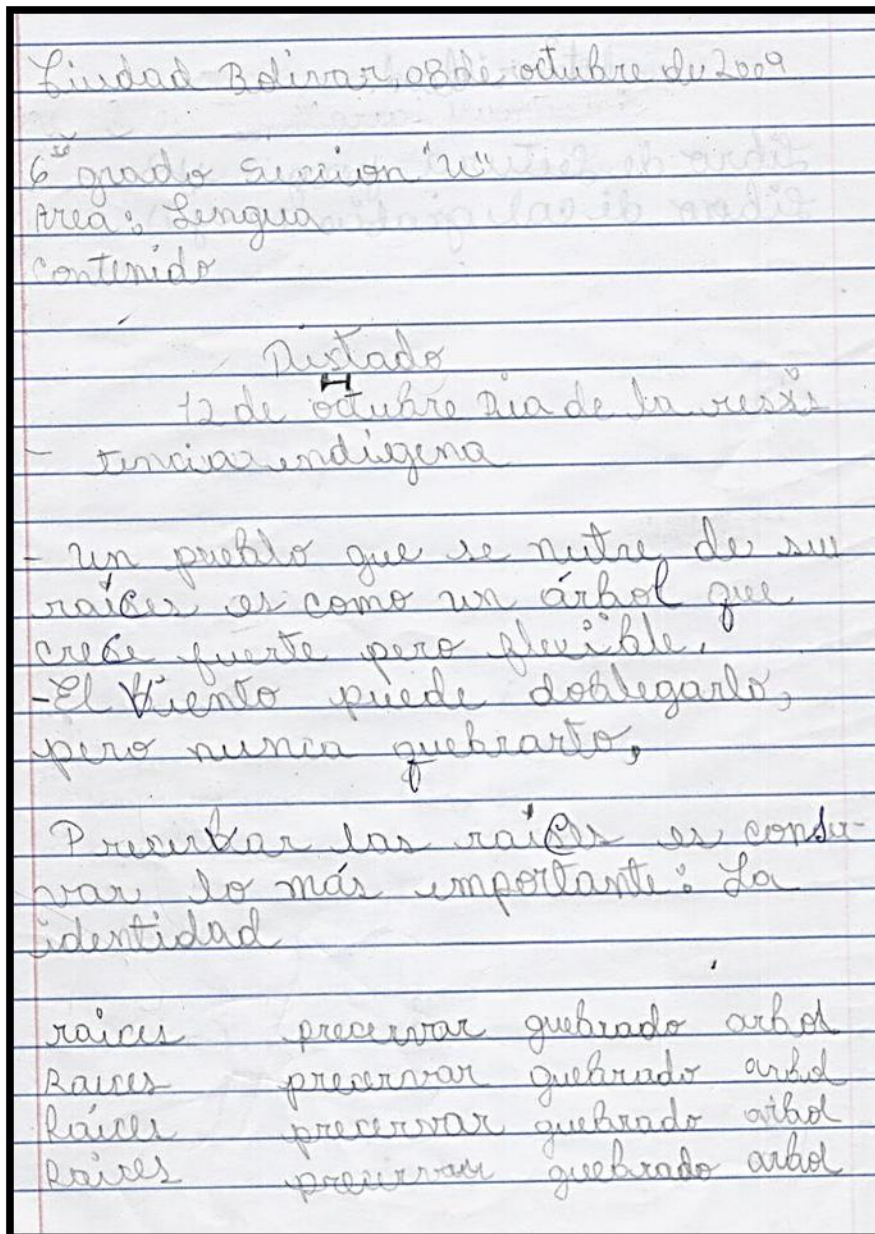 Ciudad Bolivar, 08 de octubre de 2009
6to grado Sección "U"
Area: Lengua
Contenido
Dictado
12 de octubre Dia de la resis
- tencia indigena
- Un pueblo que se nutre de sus
raíces es como un árbol que
crece fuerte pero flexible.
- El Viento puede doblegarlo,
pero nunca quebrarlo,
Precervar las raíces es conser-
var lo más importante: La
identidad
raices precervar quebrado arbol
Raices precervar quebrado arbol
Raices precervar quebrado arbol
Raices precervar quebrado arbol